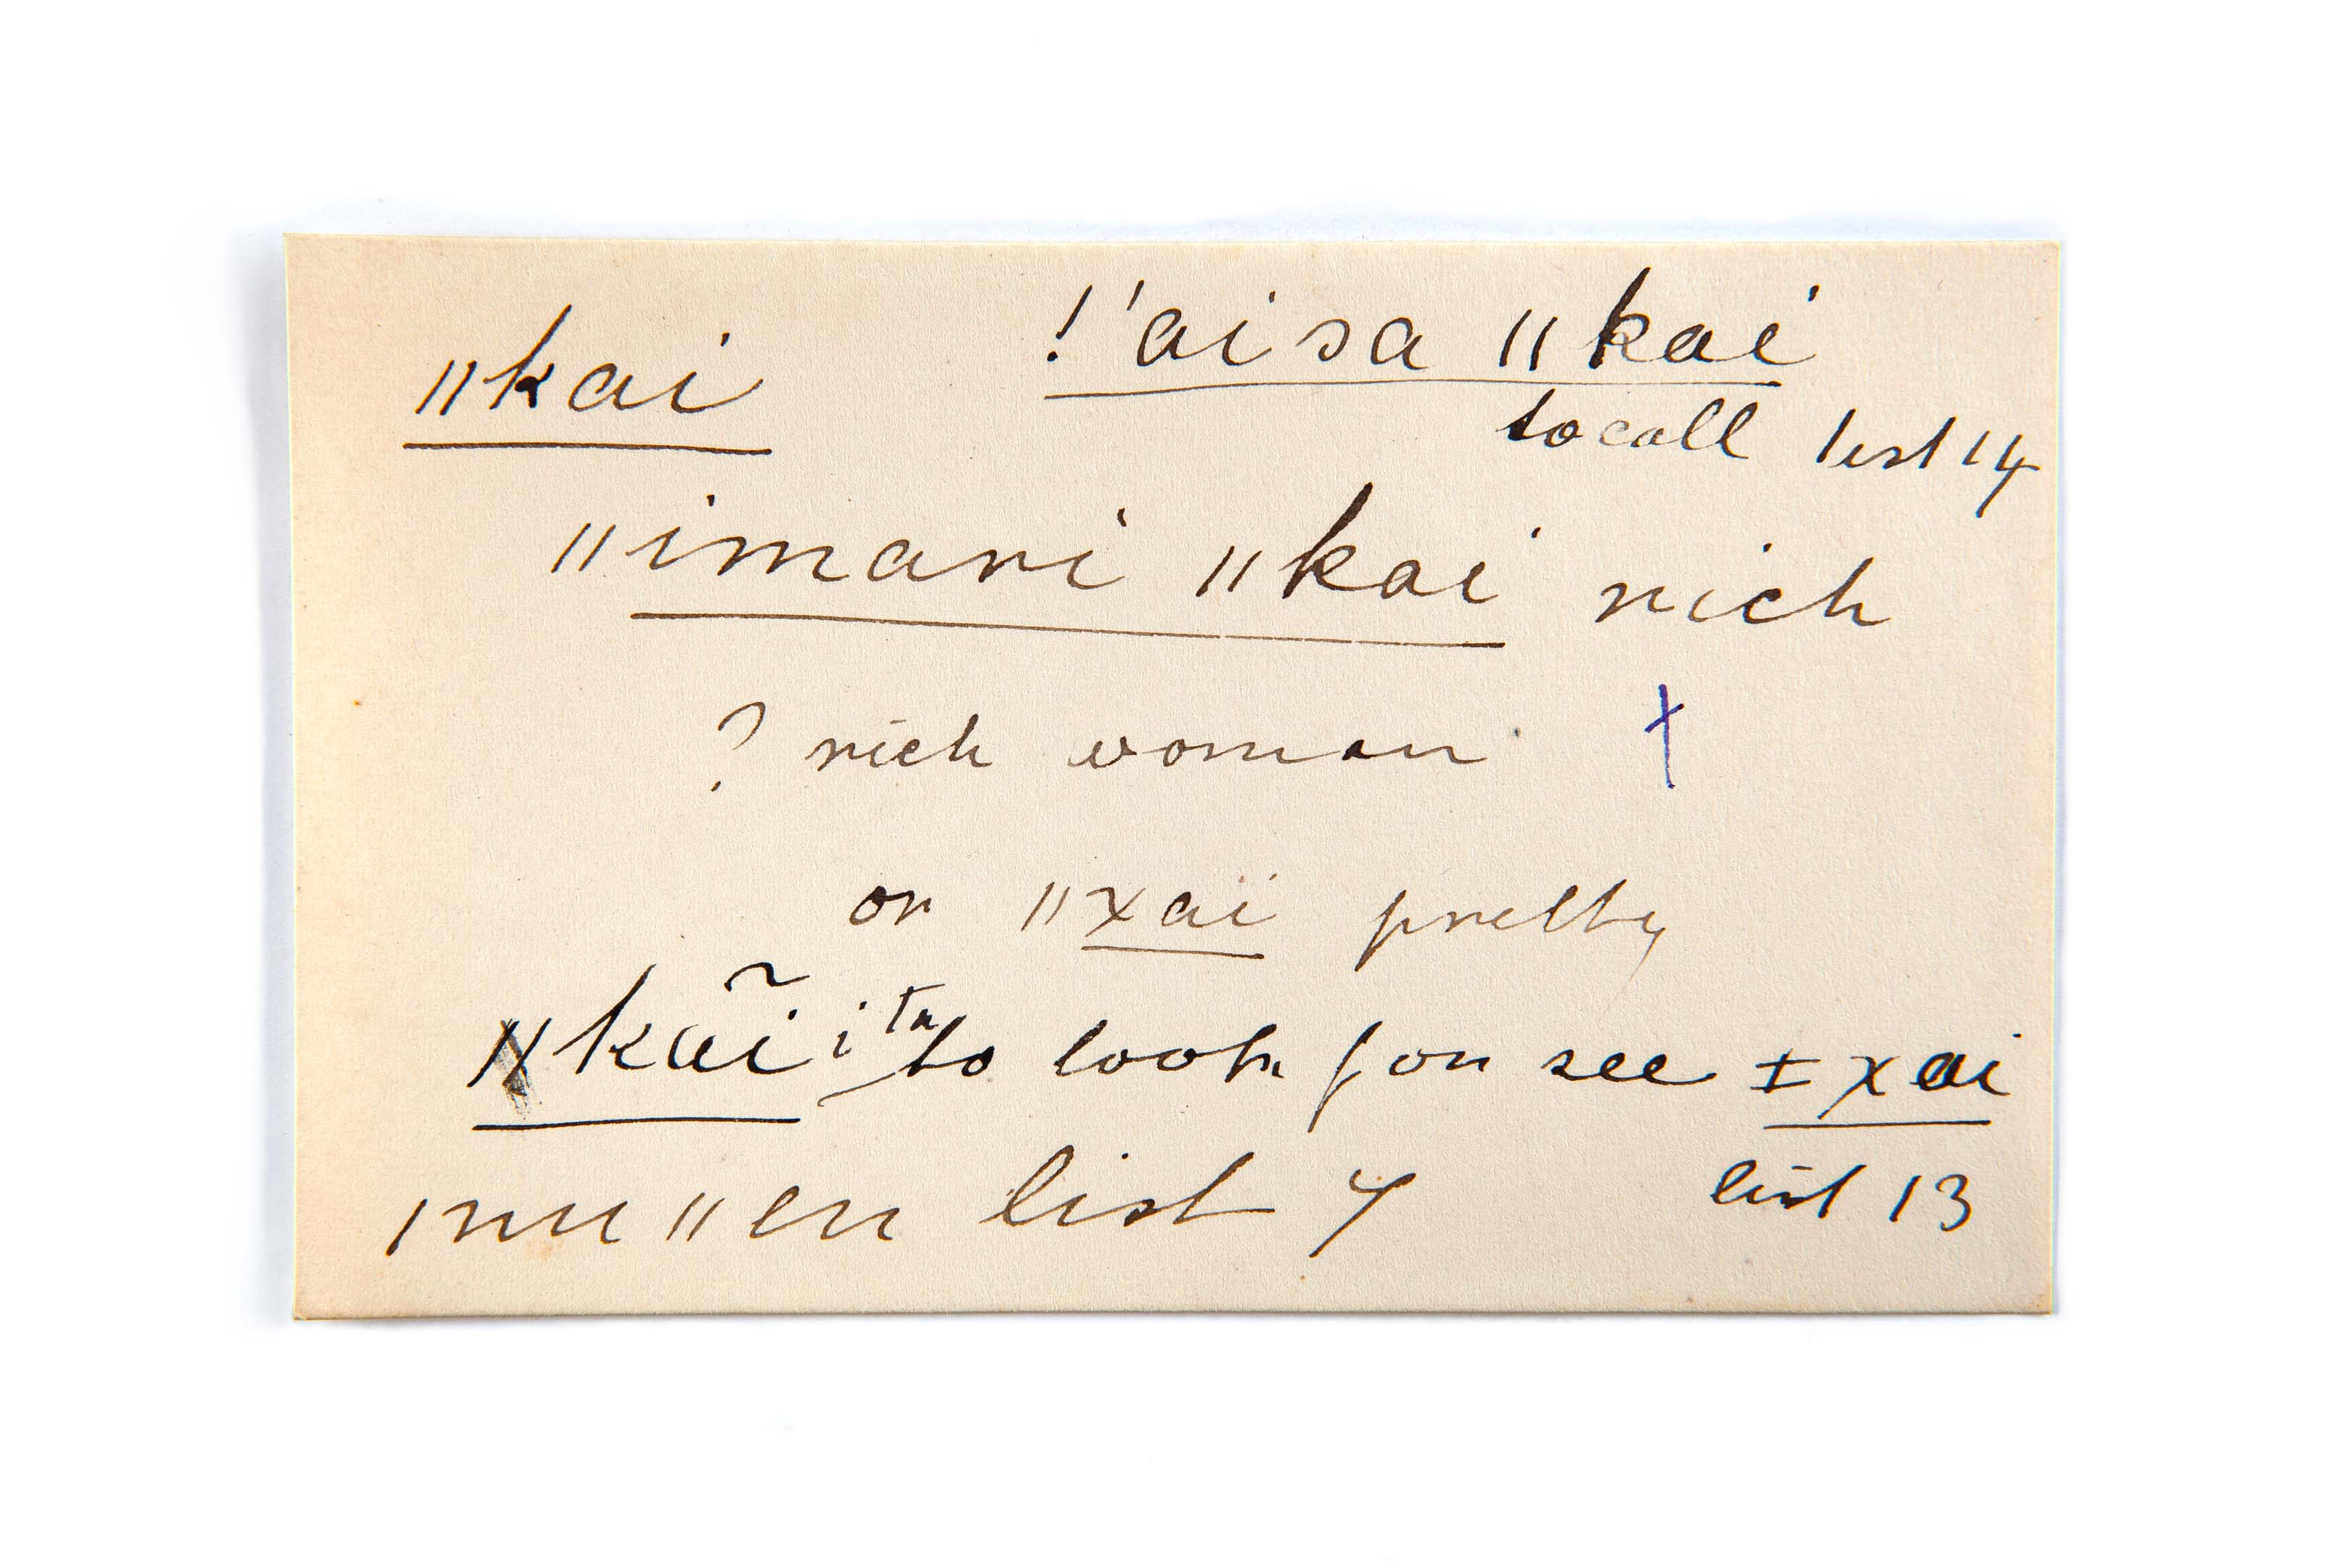 ǁkai
!'aisa ǁkai
to call list 14
ǁimari ǁkai rich
? rich woman †
or ǁxai pretty
ǁkãi i to look for see ǂxai
ǀnuǁen list 4 list 13